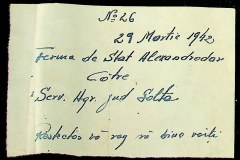 No 26
29 Martie 1942
Ferma de Stat Alexandrodar
Către
Serv. Agr. jud Golta
Respectos vă rog să bine voiți